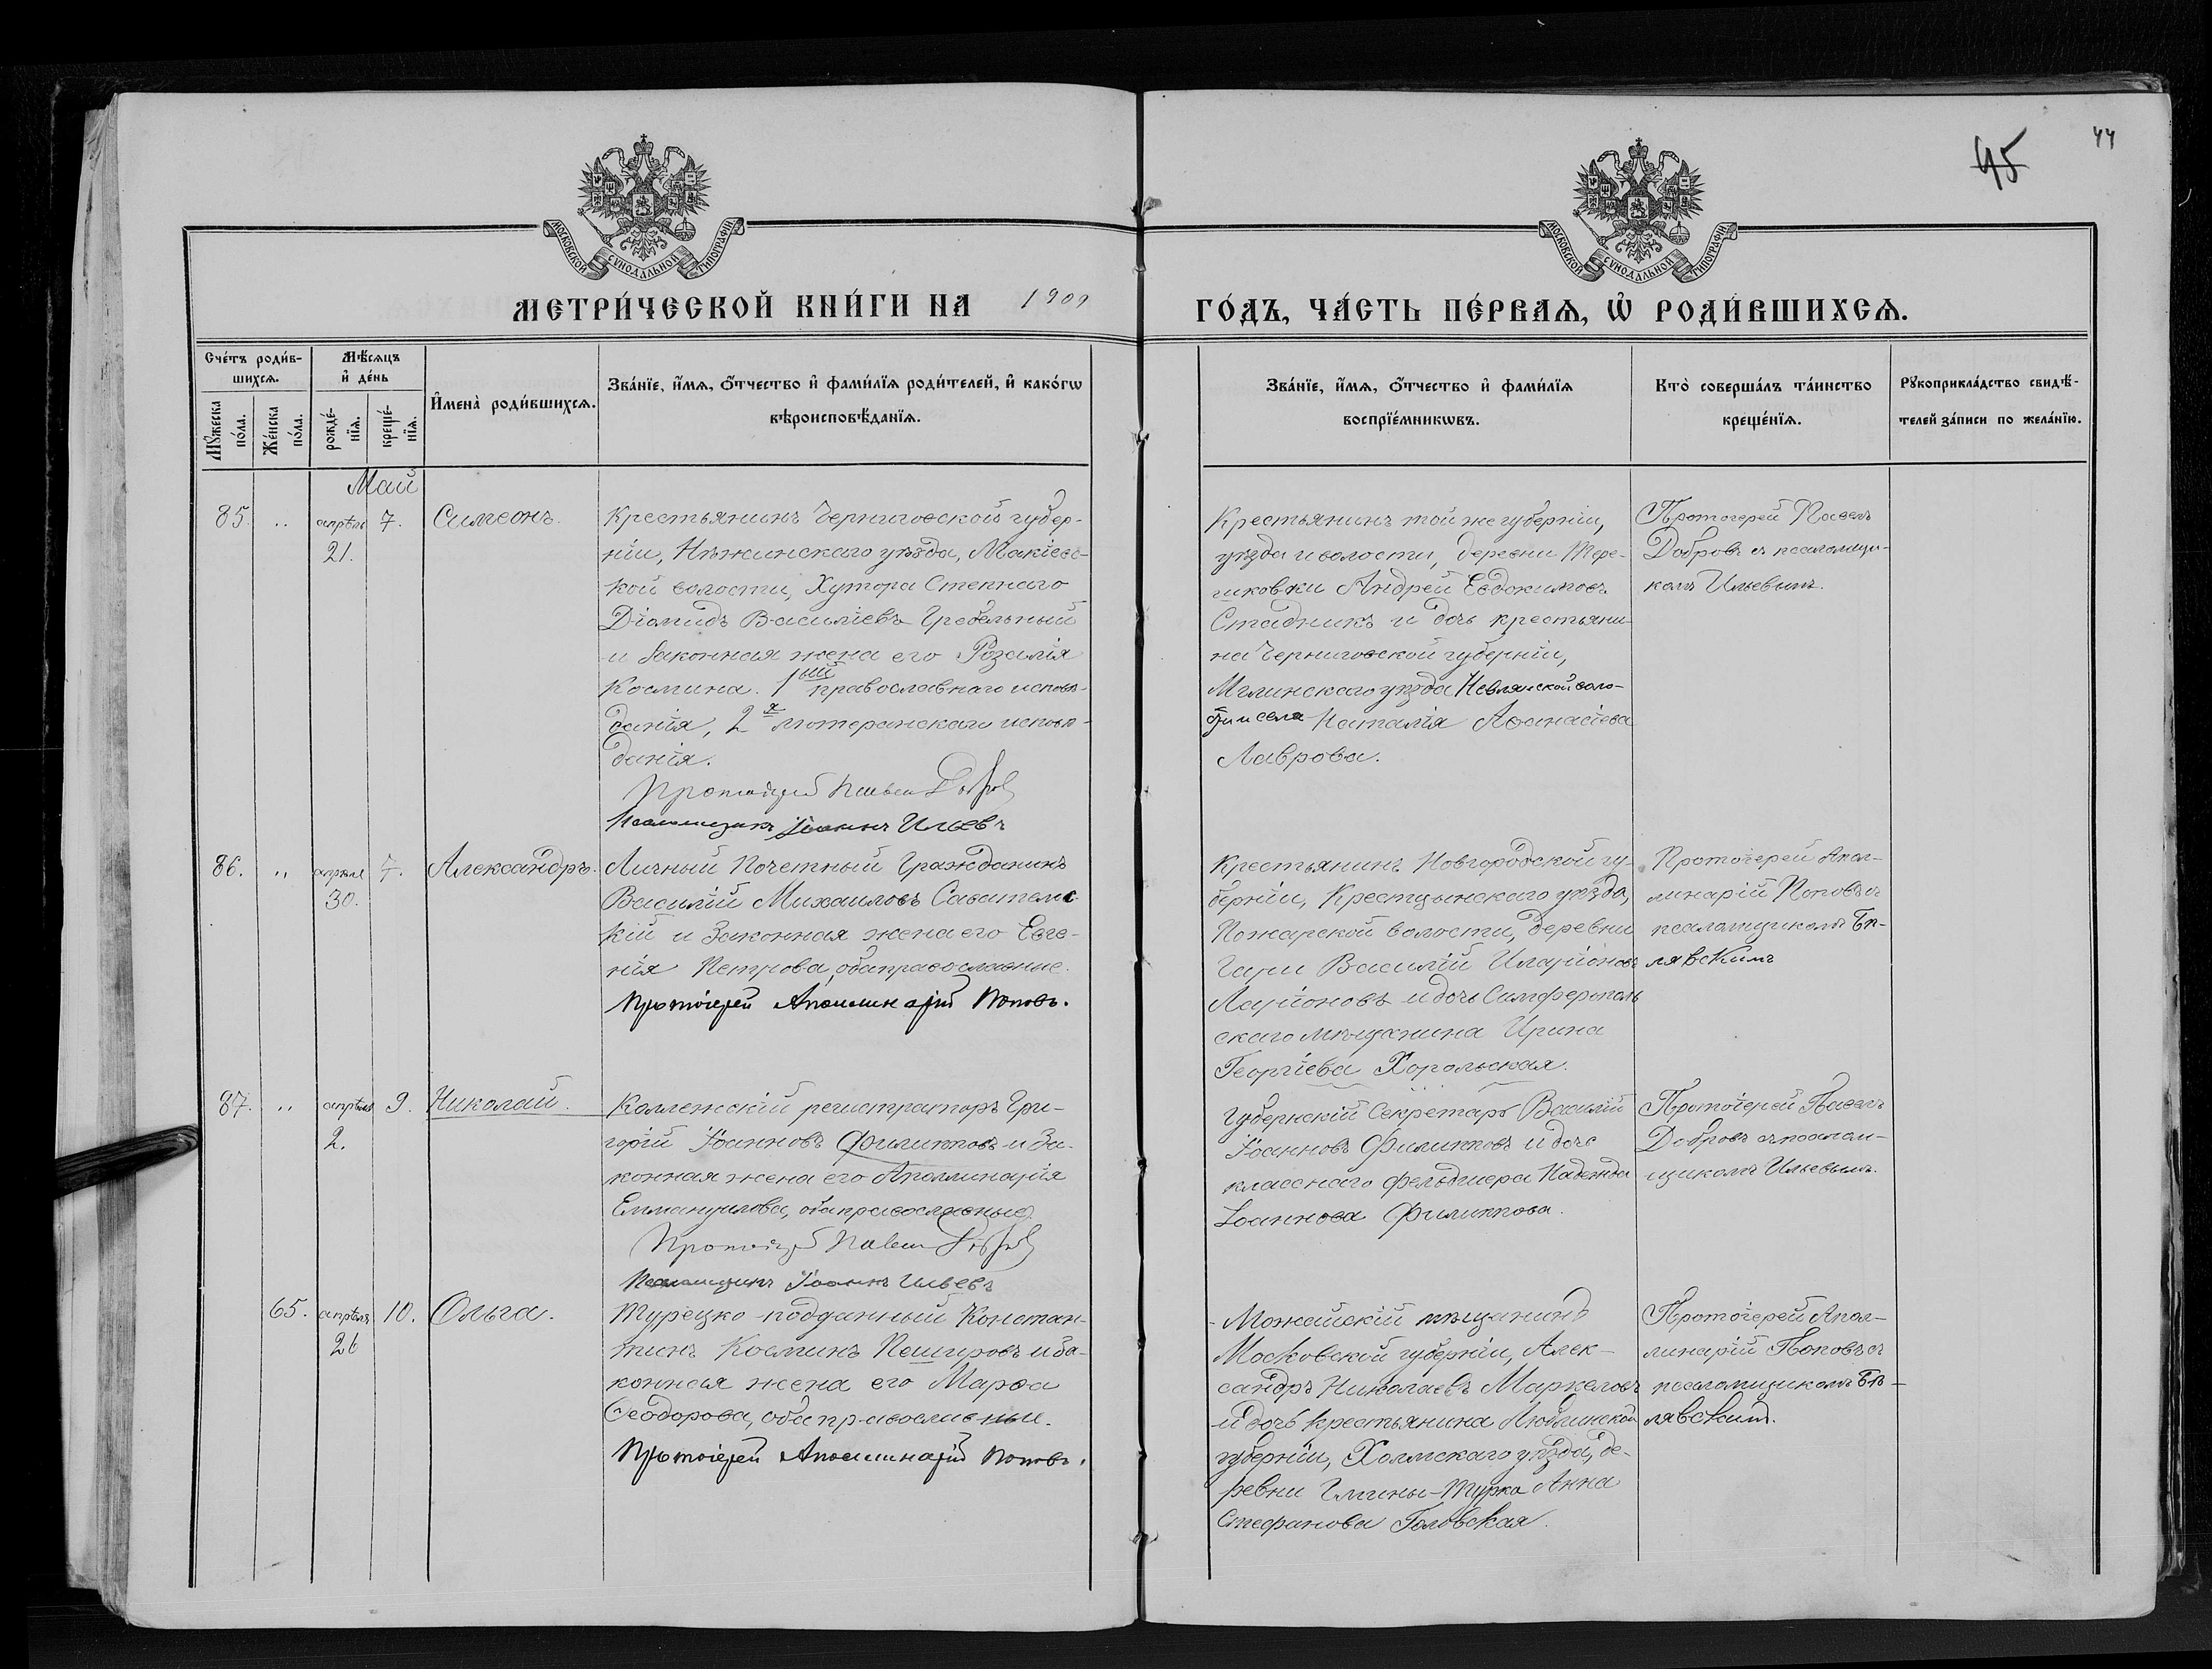 45
44
МОСКОВСКОЙ СѴНОДАЛЬНОЙ ТИПОГРАФІИ
МОСКОВСКОЙ СѴНОДАЛЬНОЙ ТИПОГРАФІИ
МЕТРИ́ЧЕСКОЙ КНИ́ГИ НА 1909
ГО́ДЪ, ЧА́СТЬ ПЕ́РВАѦ, Ѽ РОДИ́ВШИХСѦ.
Сче́тъ роди́в-
шихсѧ.
Мꙋжеска
по́ла.
Же́нска
по́ла.
Мѣ́сѧцъ
и де́нь
рожде́-
нїѧ.
креще́-
нїѧ.
Имена̀ роди́вшихсѧ.
Зва́нїе, и́мѧ, ѻ́тчество и фами́лїѧ роди́телей, и како́гѡ
вѣроисповѣ́данїѧ.
Зва́нїе, и́мѧ, ѻ́тчество и фами́лїѧ
воспрїе́мникѡвъ.
Кто̀ соверша́лъ та́инство
креще́нїѧ.
Рꙋкоприкла́дство свидѣ́-
телей за́писи по жела́нїю.
Май
85. „ апрѣля 7. Симеонъ.
21.
Крестьянинъ Черниговской губер-
ніи, Нѣжинскаго уѣзда, Макіевс-
кой волости, Хутора Степнаго
Діомидъ Василіевъ Гребельный
и законная жена его Розалія
Космина. 1ый православнаго исповѣ-
данія, 2я лютеранскаго исповѣ-
данія.
Протоіерей Павелъ Добровъ
Псаломщикъ Іоаннъ Ильевъ
Крестьянинъ той же губерніи,
уѣзда и волости, деревни Тере-
шковки Андрей Евдокимовъ
Стадникъ и дочь крестьяни-
на Черниговской губерніи,
Мглинскаго уѣзда Невлянской воло-
сти и села Наталія Аѳанасіева
Лаврова.
Протоіерей Павелъ
Добровъ съ псаломщи-
комъ Ильевымъ.
86. „ апрѣля 7. Александръ.
30.
Личный Почетный Гражданинъ
Василій Михаиловъ Саватеевс-
кій и законная жена его Евге-
нія Петрова, оба православные.
Протоіерей Аполлинарій Поповъ.
Крестьянинъ Новгородской гу-
берніи, Крестцынскаго уѣзда,
Пожарской волости, деревни
Гари Василій Иларіоновъ
Ларіоновъ и дочь Симферополь
скаго мѣщанина Ирина
Георгіева Хорольская.
Протоіерей Апол-
линарій Поповъ съ
псаломщикомъ Бѣ-
лявскимъ
87. „ апрѣля 9. Николай.
2.
Коллежскій регистраторъ Гри-
горій Іоанновъ Филипповъ и за-
конная жена его Аполлинарія
Еммануилова, оба православные
Протоіерей Павелъ Добровъ
Псаломщикъ Іоаннъ Ильевъ
Губернскій Секретарь Василій
Іоанновъ Филипповъ и дочь
класснаго фельдшера Надежда
Іоаннова Филиппова.
Протоіерей Павелъ
Добровъ съ псалом-
щикомъ Ильевымъ.
65. апрѣля 10. Ольга.
26
Турецко-подданный Констан-
тинъ Косминъ Пешпировъ и за-
конная жена его Марѳа
Ѳеодорова, оба православные.
Протоіерей Аполлинарій Поповъ.
Можайскій мѣщанинъ
Московской губерніи, Алек-
сандръ Николаевъ Маркеловъ
и дочь крестьянина Люблинской
губерніи, Холмскаго уѣзда, де-
ревни Турка Анна
Стефанова Головская.
Протоіерей Апол-
линарій Поповъ съ
псаломщикомъ Бѣ-
лявскимъ.